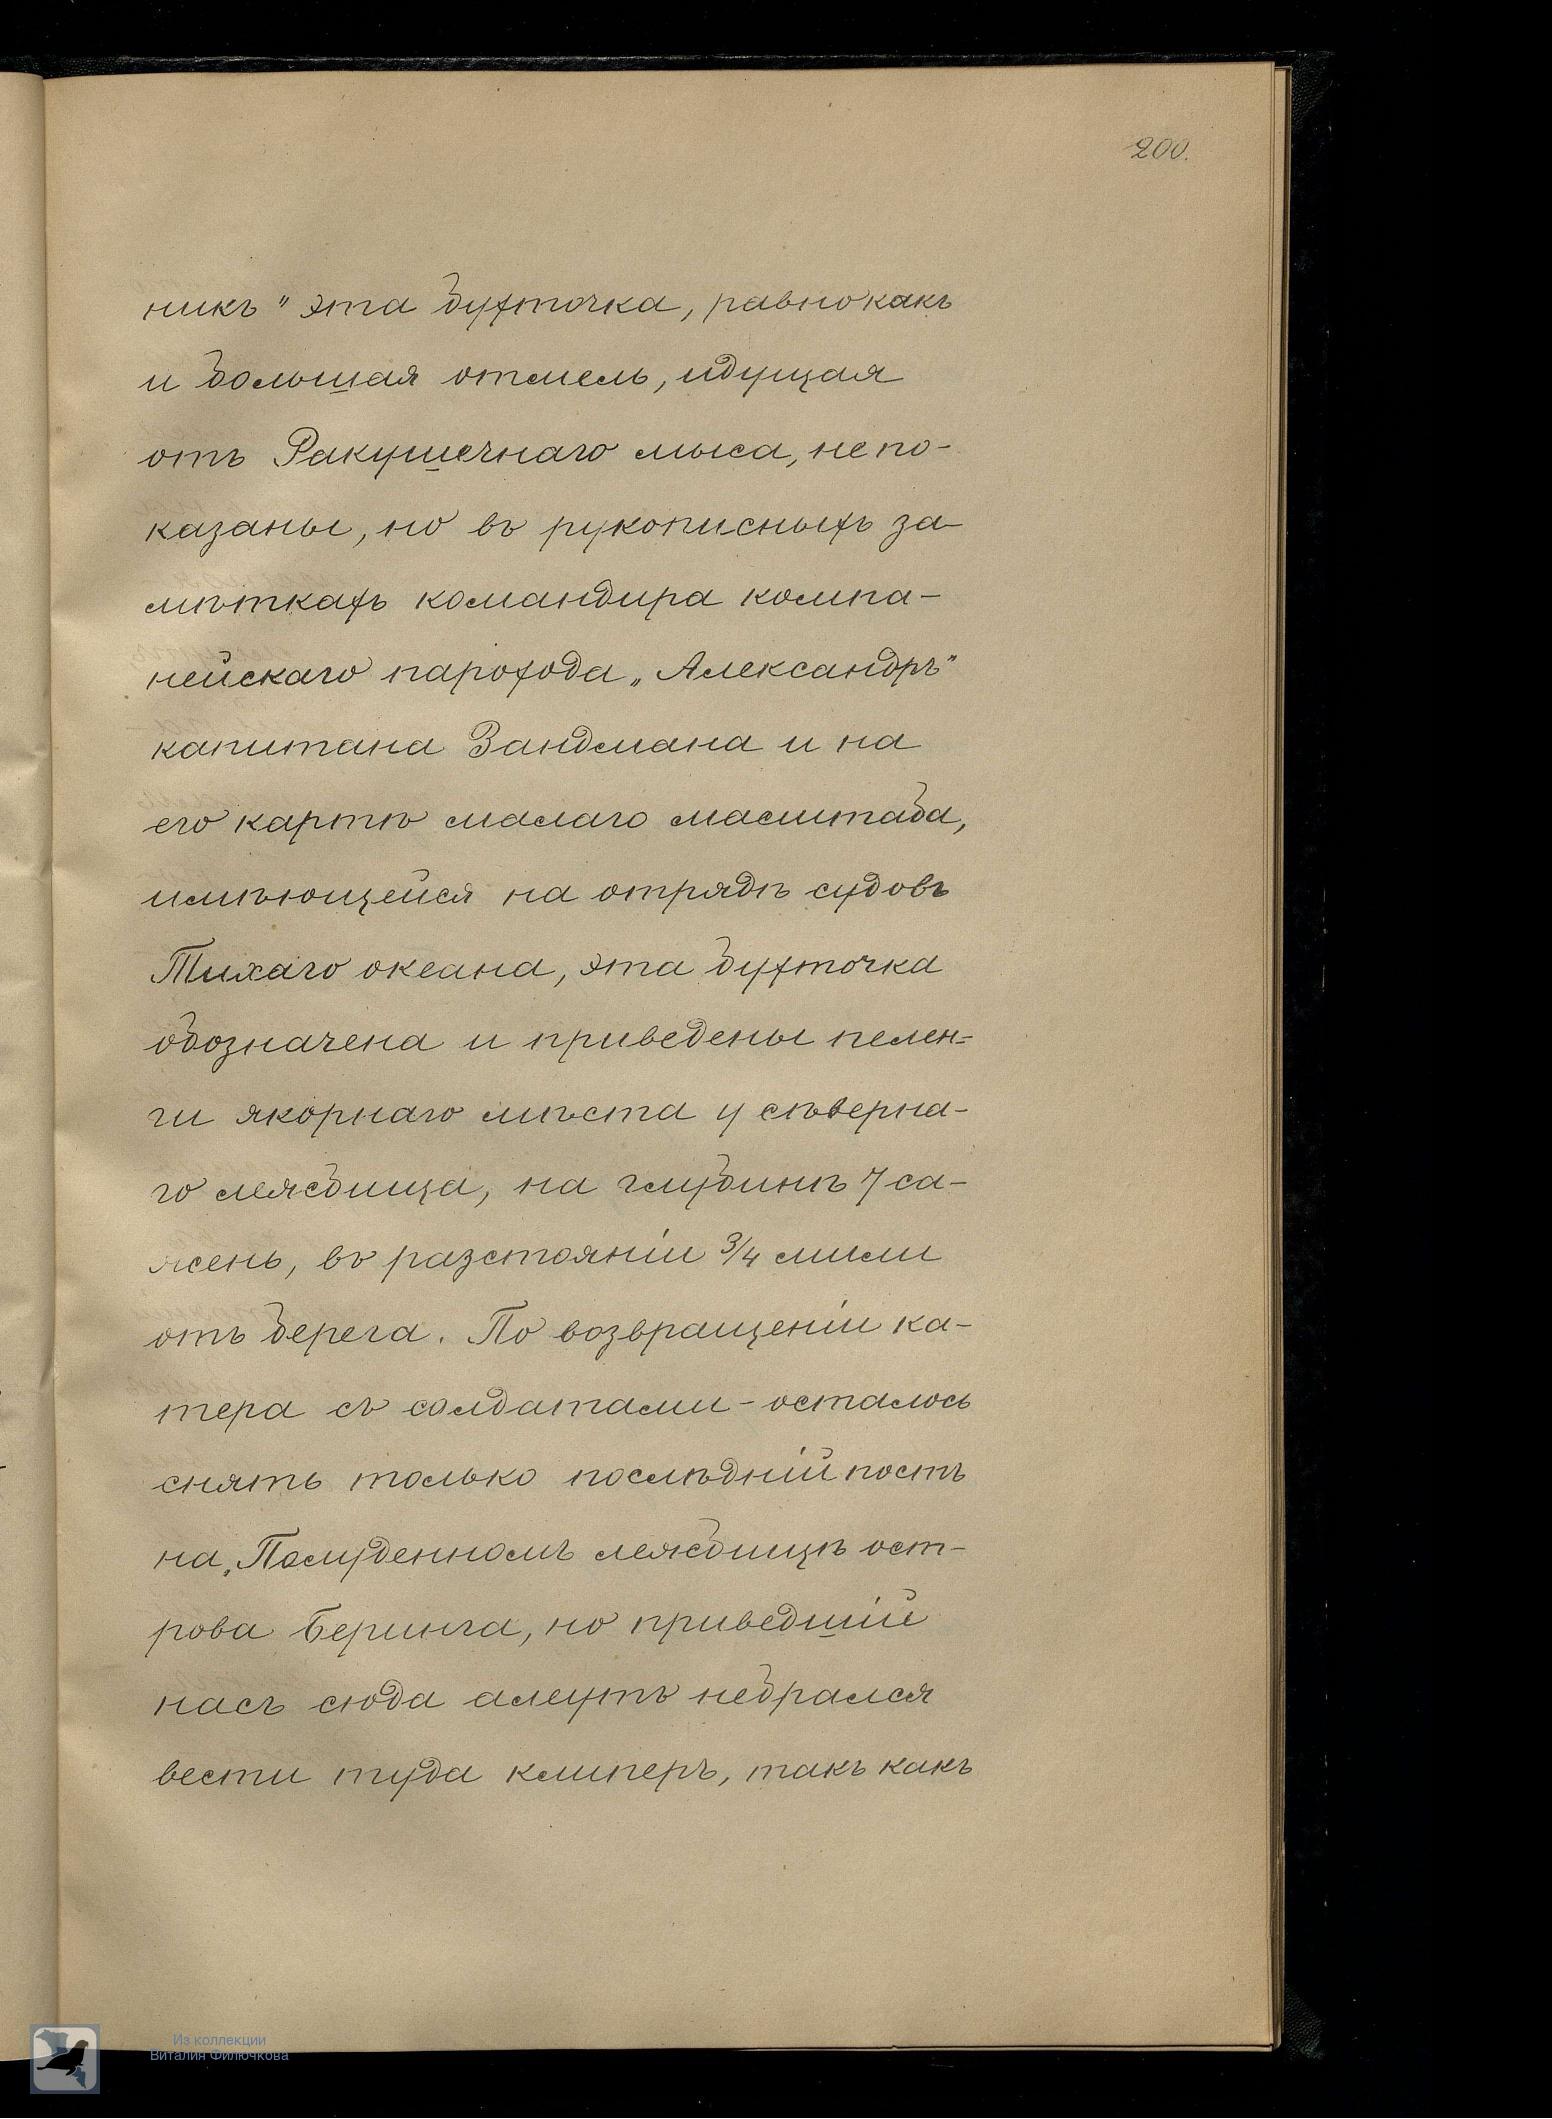 200.
никъ" эта бухточка, равно какъ
и большая отмель, идущая
отъ Ракушечнаго мыса, не по-
казаны, но въ рукописныхъ за-
мѣткахъ командира компа-
нейскаго парохода „Александръ"
капитана Зандмана и на
его картѣ малаго масштаба,
имѣющейся на отрядѣ судовъ
Тихаго океана, эта бухточка
обозначена и приведены пелен=
ги якорнаго мѣста у сѣверна-
го лежбища, на глубинѣ 7 са-
жень, въ разстояніи 3/4 мили
отъ берега. По возвращеніи ка-
тера съ солдатами - осталось
снять только послѣдній постъ
на „Полуденномъ лежбищѣ ост-
рова Беринга, но приведшій
насъ сюда алеутъ небрался
вести туда клиперъ, такъ какъ
Из коллекции
Виталия Филючкова